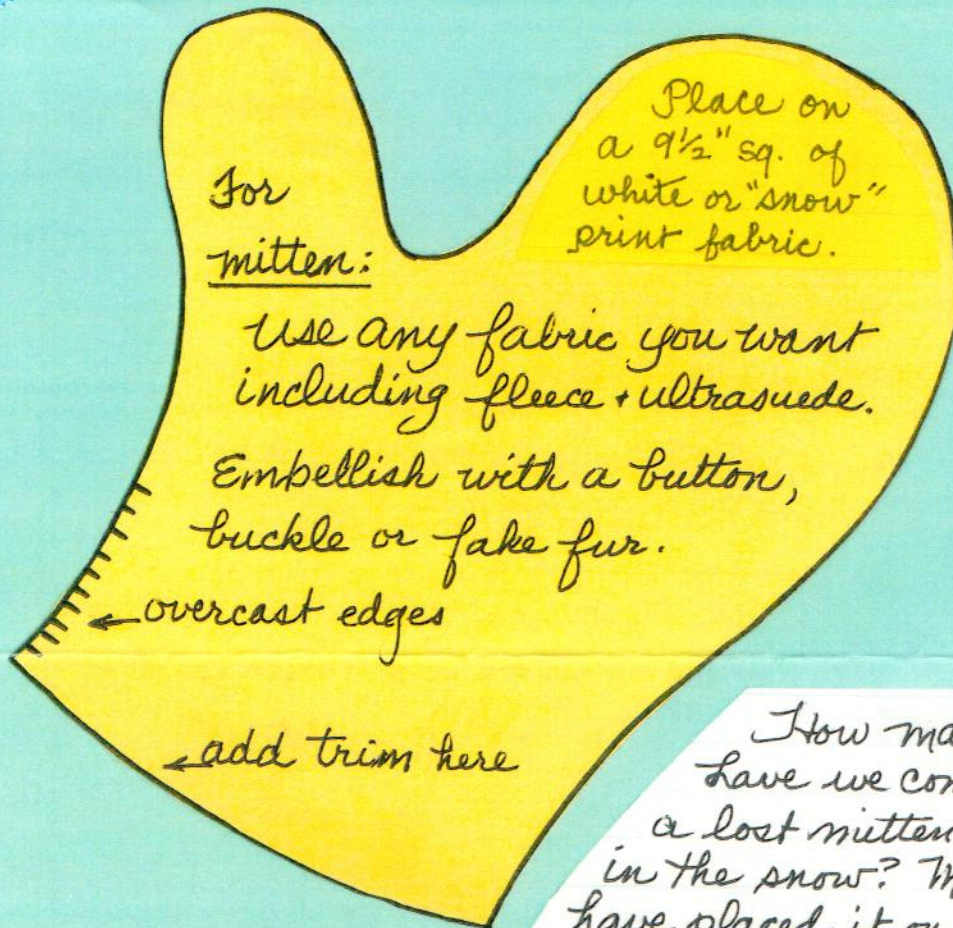 Place on
a 9½" sq. of
white or "snow"
print fabric.
For
mitten:
Use any fabric you want
including fleece + ultrasuede.
Embellish with a button,
buckle or fake fur.
←overcast edges
←add trim here
How ma
have we com
a lost mitten
in the snow?
have placed it